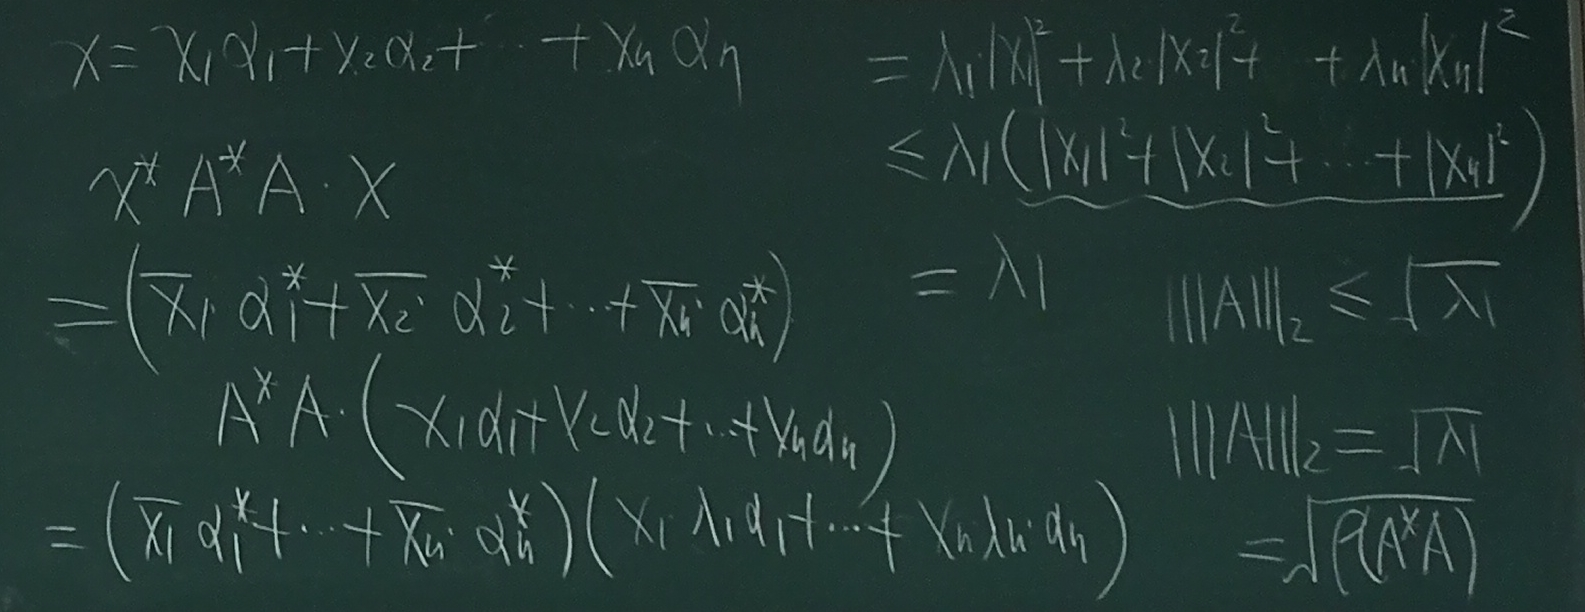 x = x₁α₁ + x₂α₂ + ⋯ + xₙαₙ
x* A* A · x
= (x̅₁ α₁* + x̅₂ α₂* + ⋯ + x̅ₙ αₙ*)
A* A · (x₁α₁ + x₂α₂ + ⋯ + xₙαₙ)
= (x̅₁ α₁* + ⋯ + x̅ₙ αₙ*)(x₁ λ₁α₁ + ⋯ + xₙλₙαₙ)
= λ₁|x₁|² + λ₂|x₂|² + + λₙ|xₙ|²
≤ λ₁(|x₁|² + |x₂|² + ⋯ + |xₙ|²)
= λ₁
|||A|||₂ ≤ √λ₁
|||A|||₂ = √λ₁
= √ρ(A*A)